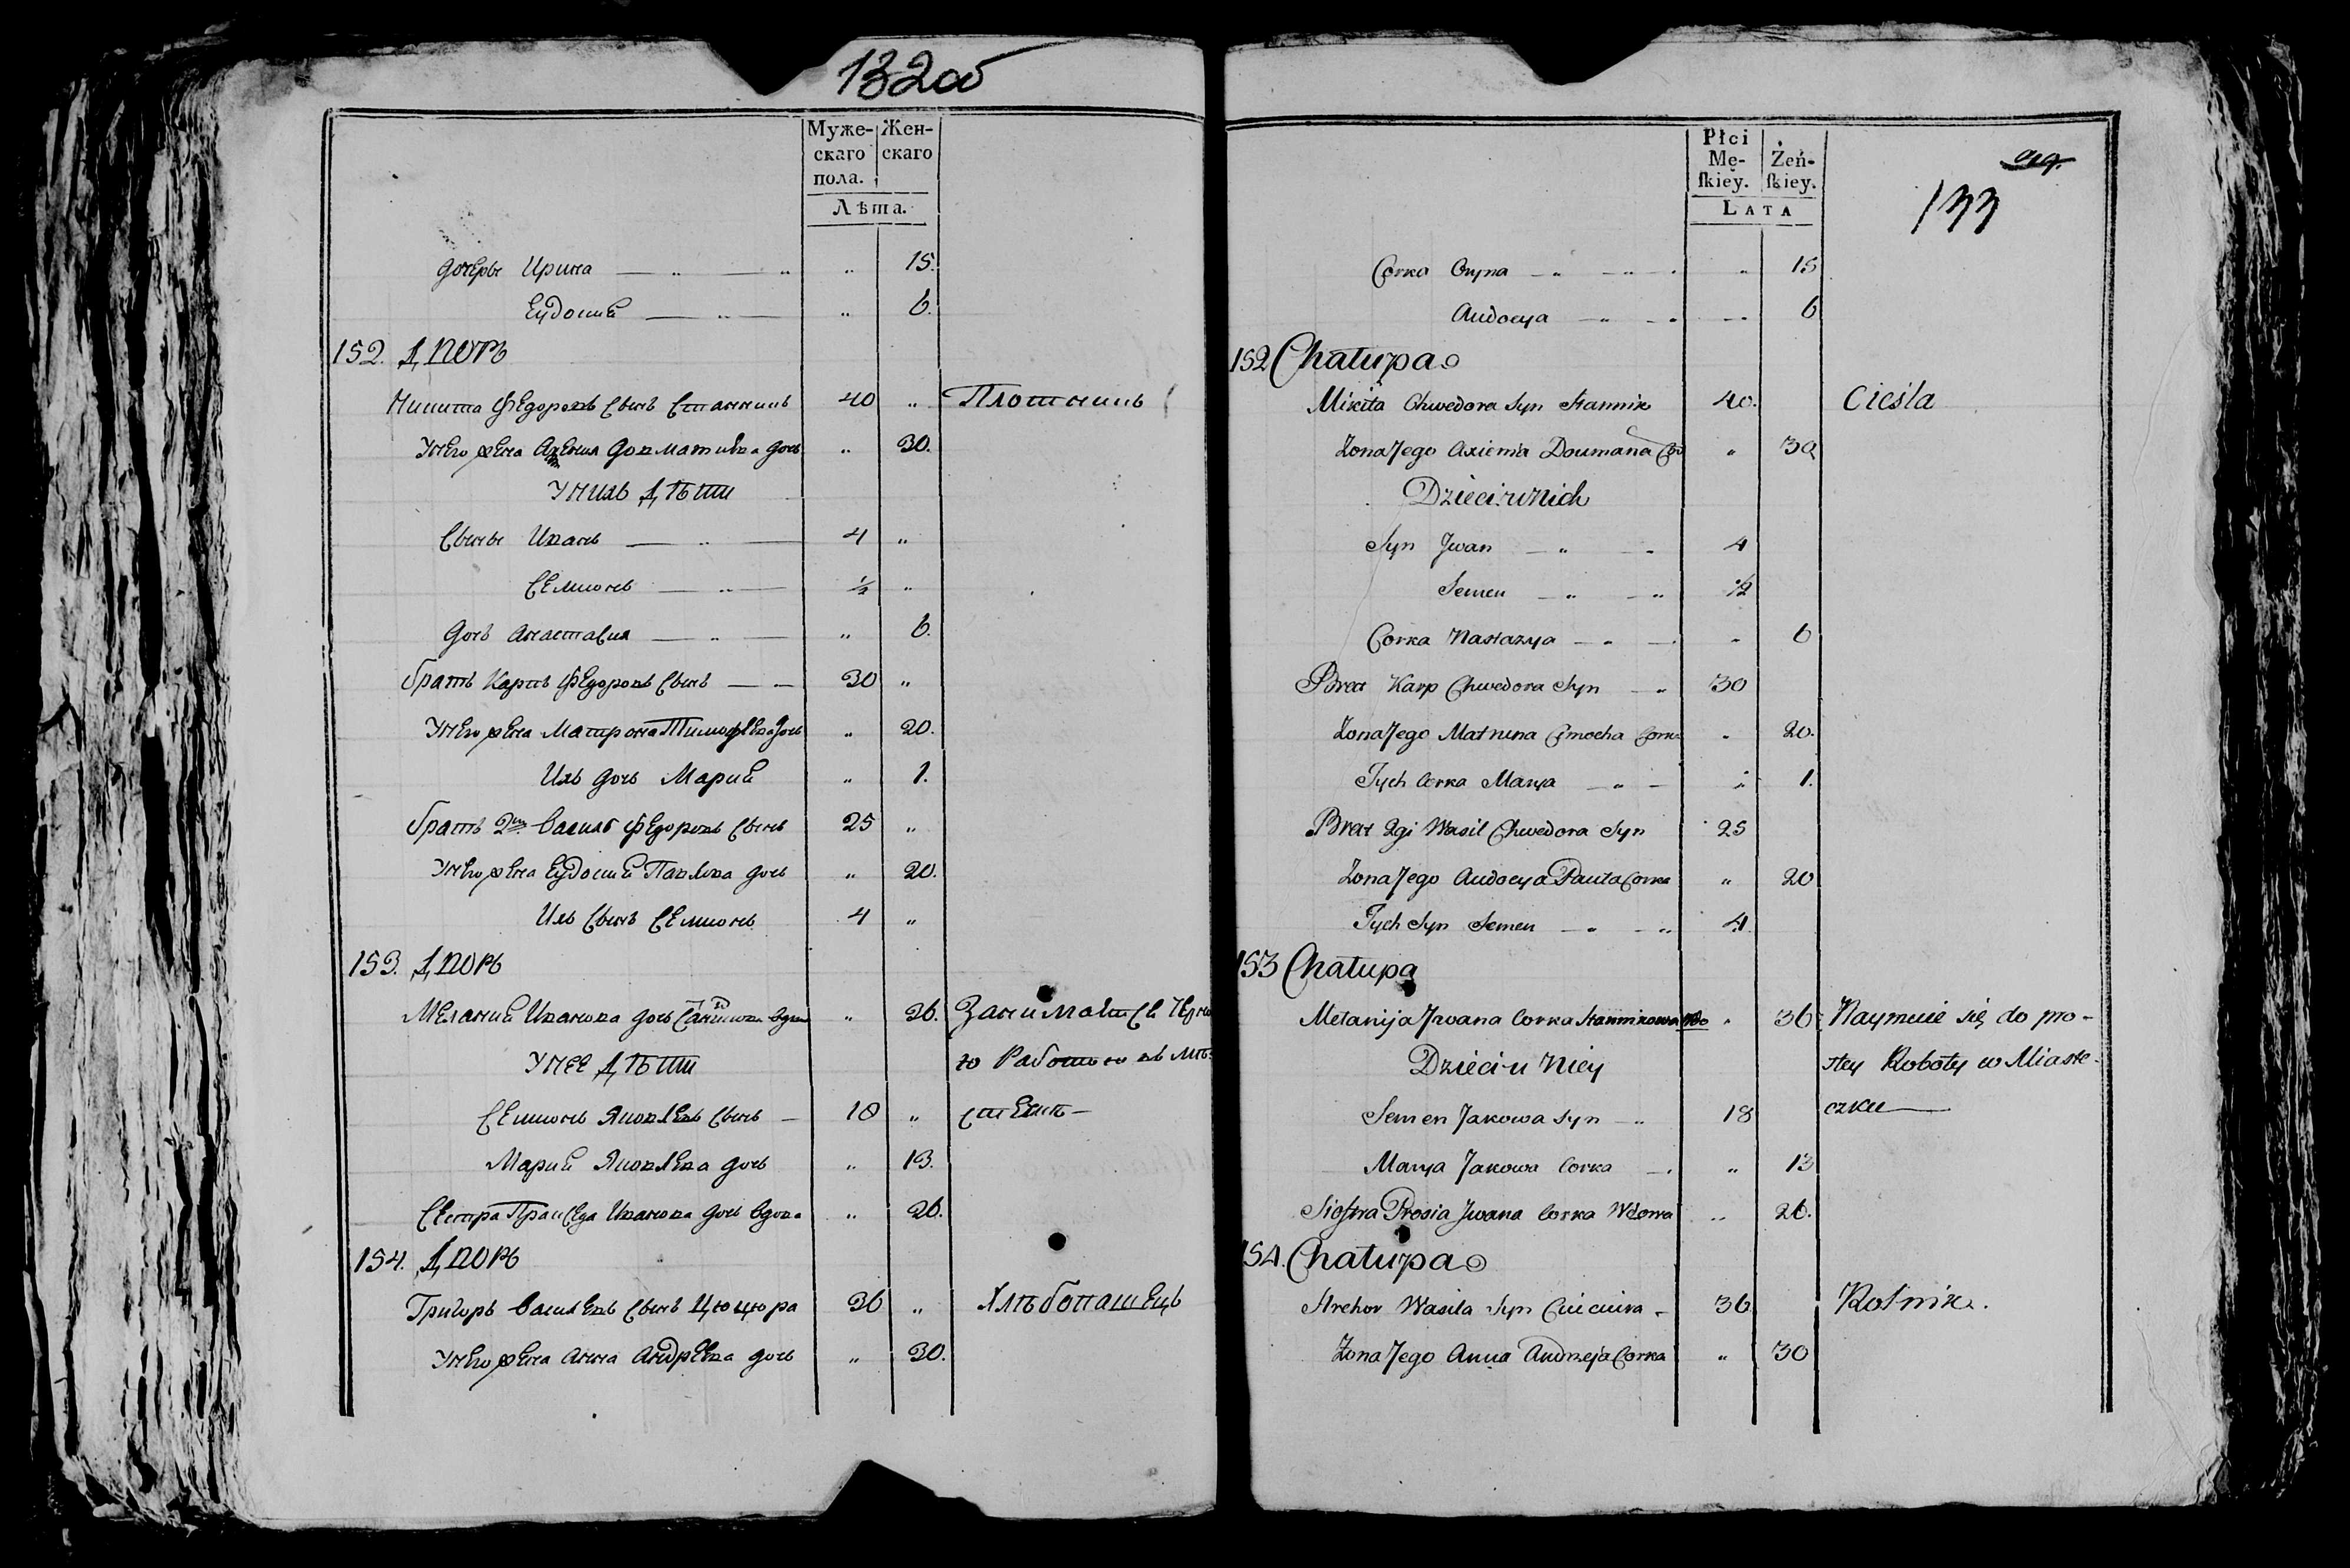 132об
Муже- Жен-
скаго скаго
пола.
Лѣта.
дочерьи Ирина — „ — „ „ 15.
Еудоций — „ — „ 6.
152. Дворъ
Никита Федоровъ Сынъ Станникъ 40 „ Плотникъ
Унего жена Аксения Довматива дочь „ 30.
Унихъ Дѣти
Сынъи Иванъ — „ — 4 „
Семионъ — „ — ½ „
Дочь Анастасия — „ — „ 6.
братъ Карпъ Федоровъ Сынъ — — 30 „
Унего жена Матрона Тимофеева дочь „ 20.
Ихъ дочь Марий „ 1.
братъ 2й Василь Федоровъ Сынъ 25 „
Унего жена Еудоций Павлова дочь „ 20.
Ихъ Сынъ Семионъ 4 „
153. Дворъ
Меланий Иванова дочь вдова „ 36. Занимаетсе Черно
Унее Дѣти ю Работою въ Мѣ-
Семионъ Яковлевъ Сынъ — 18 „ стечкѣ —
Марий Яковлева дочь „ 13.
Сестра Праиседа Иванова дочь вдова „ 26.
154. Дворъ
Григоръ Василевъ Сынъ Цюцюра 36 „ Хлѣбопашецъ
Унего жена Анна Андреева дочь „ 30.
Płci
Mę- Żeń-
ſkiey. ſkiey.
Lata
133
Corka Oryna — „ — „ „ 15
Audocya — „ — „ — 6
152 Chałupa
Mikita Chwedora Syn Stannik 40. Cieśla
Zona Jego Axienia Doumana Cor „ 30
Dzieci u Nich
Syn Jwan — „ — 4
Semen — „ — „ ½
Corka Nastazya — „ — „ 6
Brat Karp Chwedora Syn — „ 30
Zona Jego Matruna Cimocha Corka „ 20.
Jych Corka Marya — „ — „ 1.
Brat 2gi Wasil Chwedora Syn 25
Zona Jego Audocya Pauła Corka „ 20
Jych Syn Semen — „ — „ 4.
153 Chałupa
Melanija Jwana Corka Stannikowa Wdo „ 36 Naymuie się do pro-
Dzieci u Niey stey Roboty w Miaste-
Semen Jakowa Syn — „ 18 czku —
Marya Jakowa Corka — „ 13
Siostra Prosia Jwana Corka Wdowa „ 26.
154. Chałupa
Hrehor Wasila Syn Ciuciura — 36 Rolnik.
Zona Jego Anna Andrzeja Corka „ 30